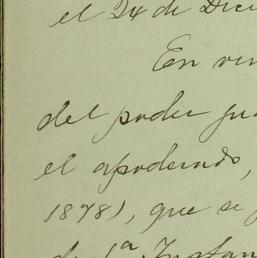 el 24 de Dici
En vir
del poder ju
el apoderado,
1878), que se
de 1ª Instan